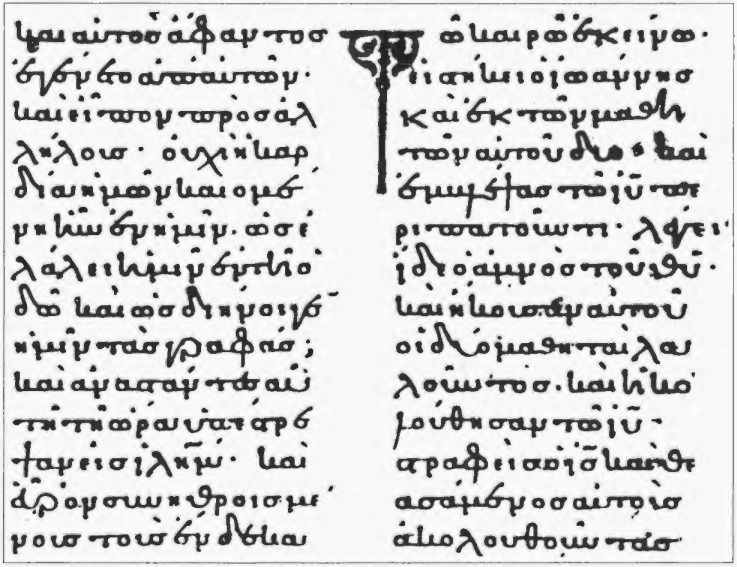 καὶ αὐτὸς ἄφαντος
ἐγένετο ἀπ' αὐτῶν·
καὶ εἶπον πρὸς ἀλ
λήλους· οὐχὶ ἡ καρ
δία ἡμῶν καιομέ
νη ἦν ἐν ἡμῖν· ὡς ἐ
λάλει ἡμῖν ἐν τῇ ὁ
δῶ καὶ ὡς διήνοιγε
ἡμῖν τὰς γραφάς;
καὶ ἀναστάντες αὐ
τῇ τῇ ὥρα ὑπέστρε
ψαν εἰς ιλημ· καὶ
εὗρον συνηθροισμέ
νους τοὺς ἕνδεκα
Τῶ καιρῶ ἐκείνω·
εἱστήκει ὁ ἰωάννης
καὶ ἐκ τῶν μαθη
τῶν αὐτοῦ δύο· καὶ
ἐμβλέψας τῶ ιυ πε
ριπατοῦντι· λέγει·
ἴδε ὁ ἀμνὸς τοῦ θυ·
καὶ ἤκουσαν αὐτοῦ
οἱ δύο μαθηταὶ λα
λοῦντος· καὶ ἠκο
λούθησαν τῶ ιυ·
στραφεὶς ὁ ις καὶ θε
ασάμενος αὐτοὺς
ἀκολουθοῦντας